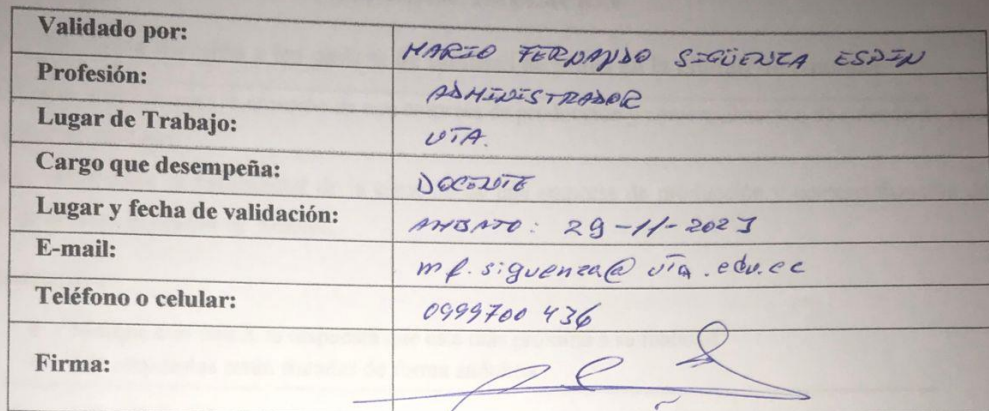 Validado por: MARIO FERNANDO SIGÜENZA ESPÍN
Profesión: ADMINISTRADOR
Lugar de Trabajo: UTA.
Cargo que desempeña: DOCENTE
Lugar y fecha de validación: AMBATO: 29-11-2023
E-mail: mf.siguenza@uta.edu.ec
Teléfono o celular: 0999700 436
Firma: